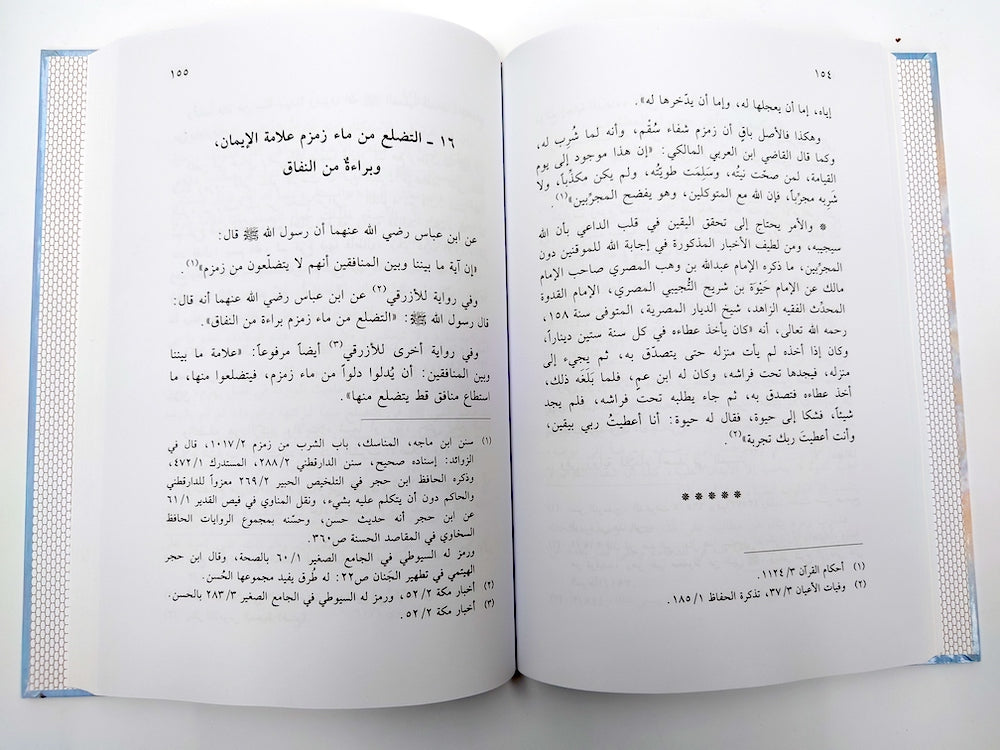 ١٥٤
إياه، إما أن يعجلها له، وإما أن يدّخرها له».
وهكذا فالأصل باقٍ أن زمزم شفاء سُقْم، وأنه لما شُرِب له،
وكما قال القاضي ابن العربي المالكي: «إن هذا موجود إلى يوم
القيامة، لمن صحّت نيتُه، وسَلِمَت طويتُه، ولم يكن مكذِّباً، ولا
شَرِبه مجرِّباً، فإن الله مع المتوكلين، وهو يفضح المجرِّبين»(١).
* والأمر يحتاج إلى تحقق اليقين في قلب الداعي بأن الله
سيجيبه، ومن لطيف الأخبار المذكورة في إجابة الله للموقنين دون
المجرِّبين، ما ذكره الإمام عبدالله بن وهب المصري صاحب الإمام
مالك عن الإمام حَيْوَة بن شريح التُّجيبي المصري، الإمام القدوة
المحدِّث الفقيه الزاهد، شيخ الديار المصرية، المتوفى سنة ١٥٨،
رحمه الله تعالى، أنه «كان يأخذ عطاءه في كل سنة ستين ديناراً،
وكان إذا أخذه لم يأت منزله حتى يتصدّق به، ثم يجيء إلى
منزله، فيجدها تحت فراشه، وكان له ابن عم، فلما بَلَغَه ذلك،
أخذ عطاءه فتصدق به، ثم جاء يطلبه تحت فراشه، فلم يجد
شيئاً، فشكا إلى حيوة، فقال له حيوة: أنا أعطيتُ ربي بيقين،
وأنت أعطيتَ ربك تجربة»(٢).
* * * * *
(١) أحكام القرآن ١١٢٤/٣.
(٢) وفيات الأعيان ٣٧/٣، تذكرة الحفاظ ١٨٥/١.
١٥٥
١٦ ـ التضلع من ماء زمزم علامة الإيمان،
وبراءةٌ من النفاق
عن ابن عباس رضي الله عنهما أن رسول الله ﷺ قال:
«إن آية ما بيننا وبين المنافقين أنهم لا يتضلّعون من زمزم»(١).
وفي رواية للأزرقي(٢) عن ابن عباس رضي الله عنهما أنه قال:
قال رسول الله ﷺ: «التضلع من ماء زمزم براءة من النفاق».
وفي رواية أخرى للأزرقي(٣) أيضاً مرفوعاً: «علامة ما بيننا
وبين المنافقين: أن يُدلوا دلواً من ماء زمزم، فيتضلعوا منها، ما
استطاع منافق قط يتضلع منها».
(١) سنن ابن ماجه، المناسك، باب الشرب من زمزم ١٠١٧/٢، قال في
الزوائد: إسناده صحيح، سنن الدارقطني ٢٨٨/٢، المستدرك ٤٧٢/١،
وذكره الحافظ ابن حجر في التلخيص الحبير ٢٦٩/٢ معزواً للدارقطني
والحاكم دون أن يتكلم عليه بشيء، ونقل المناوي في فيض القدير ٦١/١
عن ابن حجر أنه حديث حسن، وحسّنه بمجموع الروايات الحافظ
السخاوي في المقاصد الحسنة ص٣٦٠.
ورمز له السيوطي في الجامع الصغير ٦٠/١ بالصحة، وقال ابن حجر
الهيتمي في تطهير الجَنان ص٢٢: له طُرق يفيد مجموعها الحُسن.
(٢) أخبار مكة ٥٢/٢، ورمز له السيوطي في الجامع الصغير ٢٨٣/٣ بالحسن.
(٣) أخبار مكة ٥٢/٢.